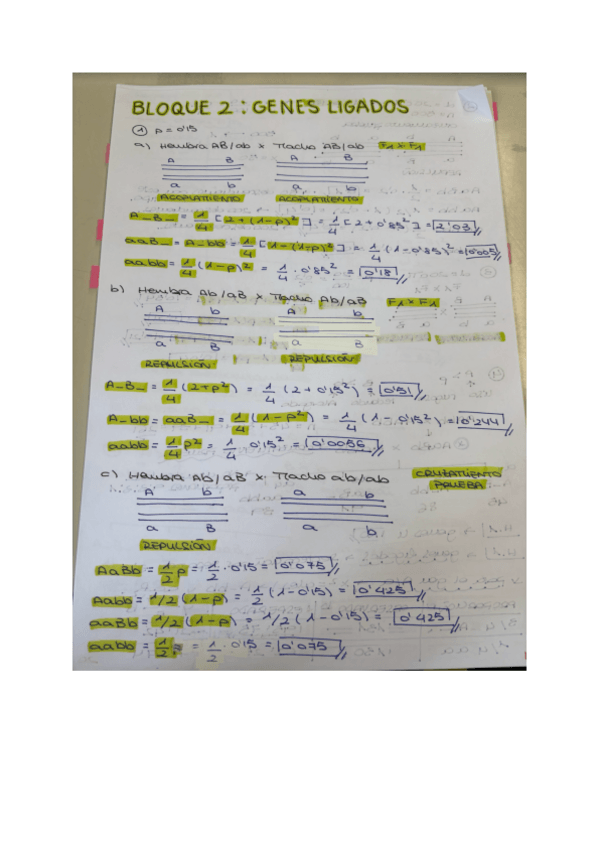 BLOQUE 2 : GENES LIGADOS
① p = 0'15
a) Hembra AB/ab x Macho AB/ab F1 x F1
A B A B
a b a b
ACOPLAMIENTO ACOPLAMIENTO
A_B_ = 1/4 [2+(1-p)²] = 1/4 [2+0'85²] = 2'03
aaB_ = A_bb = 1/4 [1-(1-p)²] = 1/4 (1-0'85)² = 0'005
aabb = 1/4 (1-p)² = 1/4 · 0'85² = 0'18
b) Hembra Ab/aB x Macho Ab/aB F1 x F1
A b A b
a B a B
REPULSIÓN REPULSIÓN
A_B_ = 1/4 (2+p²) = 1/4 (2+0'15²) = 0'51
A_bb = aaB_ = 1/4 (1-p²) = 1/4 (1-0'15²) = 0'244
aabb = 1/4 p² = 1/4 · 0'15² = 0'0056
c) Hembra Ab/aB x Macho ab/ab CRUZAMIENTO
PRUEBA
A b a b
a B a b
REPULSIÓN
AaBb = 1/2 p = 1/2 · 0'15 = 0'075
Aabb = 1/2 (1-p) = 1/2 (1-0'15) = 0'425
aaBb = 1/2 (1-p) = 1/2 (1-0'15) = 0'425
aabb = 1/2 p = 1/2 · 0'15 = 0'075